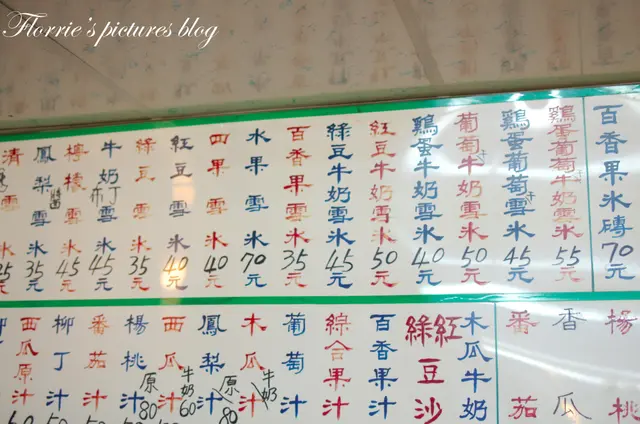 Florrie's pictures blog
百香果冰磚70元
鷄蛋葡萄牛奶雪冰55元
鷄蛋葡萄雪冰45元
葡萄牛奶雪冰50元
鷄蛋牛奶雪冰40元
紅豆牛奶雪冰50元
綠豆牛奶雪冰45元
百香果雪冰35元
水果雪冰70元
四果雪冰40元
紅豆雪冰40元
綠豆雪冰35元
牛奶布丁雪冰45元
檸檬雪冰45元
鳳梨雪冰35元
清雪冰25元
楊桃
香瓜
番茄
木瓜牛奶
紅綠豆沙
百香果汁
綜合果汁
葡萄汁
木瓜汁牛奶
鳳梨汁原80
西瓜汁牛奶60
楊桃汁原80
番茄汁
柳丁汁
西瓜原汁